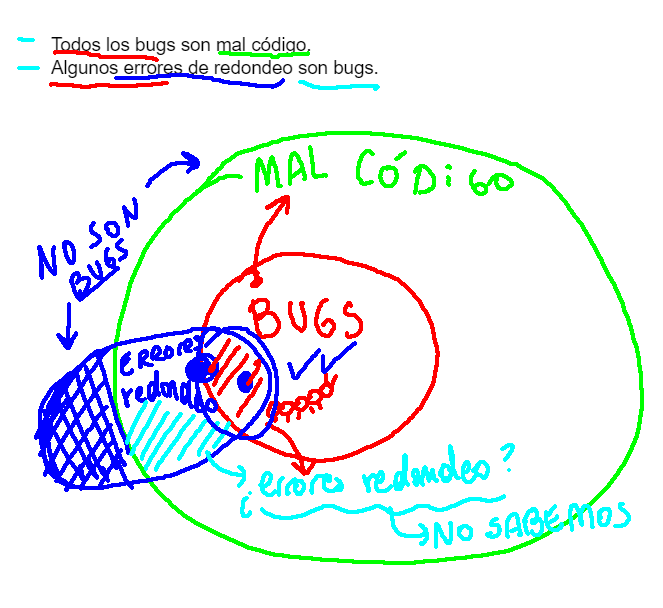 Todos los bugs son mal código.
Algunos errores de redondeo son bugs.
MAL CÓDiGO
NO SON
BUGS
BUGS
ERRORES
redondeo
¿errores redondeo?
NO SABEMOS